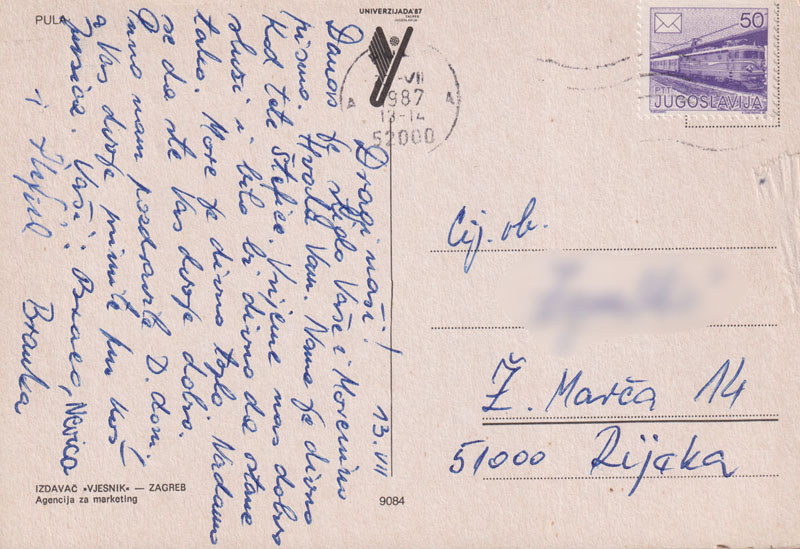 PULA
UNIVERZIJADA'87
ZAGREB
JUGOSLAVIJA
VII
1987
13-14
52000
A A
50
PTT
JUGOSLAVIJA
Dragi naši! 13. VII
Danas je stiglo Vaše i
pismo. Hvala Vam. Nama je divno
kod tete Štefice. Vrijeme nas dobro
služi i bilo bi divno da ostane
tako. More je divno toplo. Nadamo
se da ste Vas dvoje dobro.
Puno nam pozdravite D. dom.
a Vas dvoje primite pun koš
pusica. Vaši: Braco, Nevica
i Branka
Cij. ob.
Ž. Marča 14
51000 Rijeka
IZDAVAČ »VJESNIK« — ZAGREB
Agencija za marketing
9084